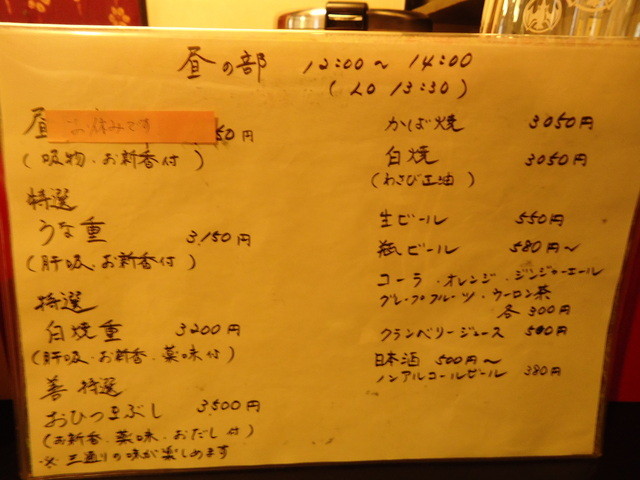 昼の部 12:00〜14:00
(LO 13:30)
昼
お休みです
50円
(吸物・お新香付)
特選
うな重 3,150円
(肝吸、お新香付)
特選
白焼重 3200円
(肝吸・お新香・薬味付)
善特選
おひつまぶし 3500円
(お新香、薬味、おだし付)
※三通りの味が楽しめます
かば焼 3050円
白焼 3050円
(わさび正油)
生ビール 550円
瓶ビール 580円〜
コーラ・オレンジ・ジンジャーエール
グレープフルーツ・ウーロン茶
各300円
クランベリージュース 500円
日本酒 500円〜
ノンアルコールビール 380円